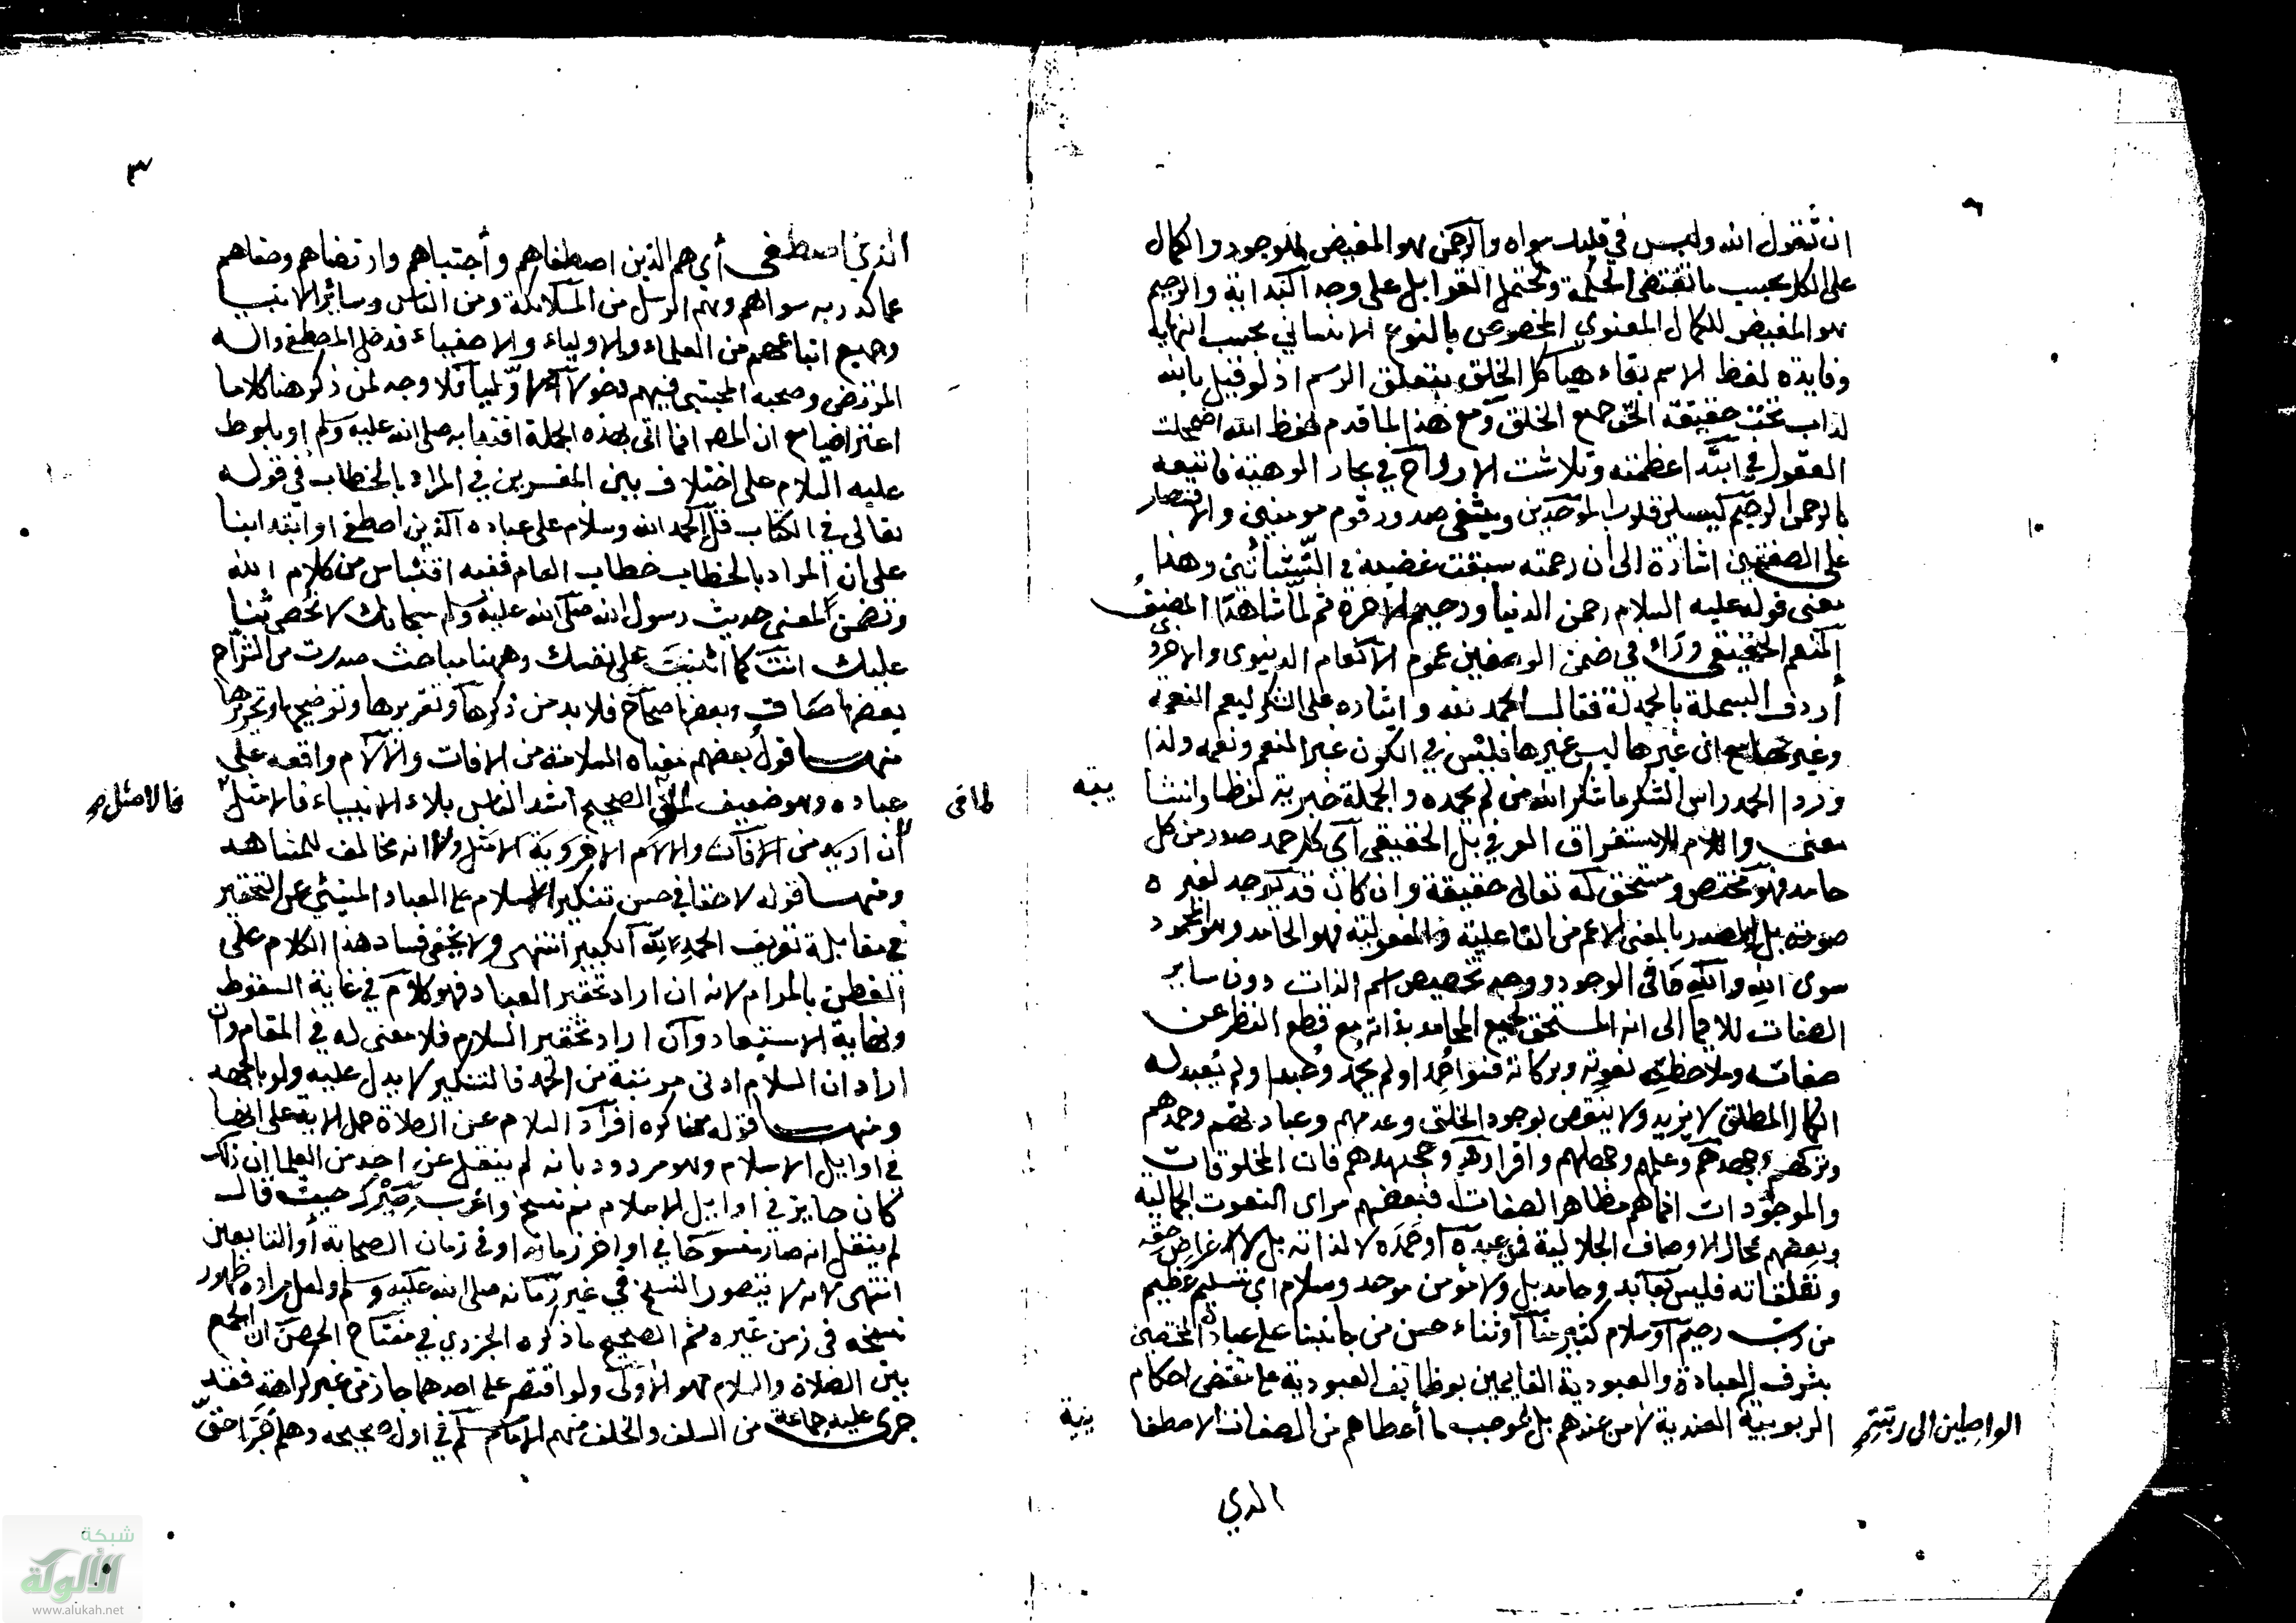 ان تقول الله وليس في قلبك سواه والرحمن هو المفيض للوجود والكمال
على الكل بحسب ما تقتضي الحكمة وتحتمل القوابل على وجه البداية والرحيم
هو المفيض للكمال المعنوي المخصوص بالنوع الانساني بحسب النهاية
وفايدة لفظ الاسم بقاء هياكل الخلق بتعلق الرسم اذ لو قيل بالله
لذاب تحت حقيقة الحق جميع الخلق ومع هذا لما قدم لفظ الله اضمحلت
العقول في ابتداء عظمته وتلاشت الارواح في بحار الوهيته فاتبعه
بالرحمن الرحيم ليسلى قلوب الموحدين ويشفى صدور قوم مومنين والاقتصار
على الصفتين اشارة الى ان رحمته سبقت غضبه في النشأتين وهذا
معنى قوله عليه السلام رحمن الدنيا ورحيم الاخرة ثم لما شاهد المصنف
المنعم الحقيقي ورأى في ضمن الوصفين عموم الانعام الدنيوى والاخروى
أردف البسملة بالحمدلة فقال الحمد لله وايثاره على الشكر ليعم النعمة
وغيرها مع ان غيرها ليس غيرها فليس في الكون غير المنعم ونعمه ولذا
ورد الحمد راس الشكر ما شكر الله من لم يحمده والجملة خبرية لفظا وانشائية
معنى واللام للاستغراق العرفي بل الحقيقي أي كل حمد صدر من كل
حامد فهو مختص ومستحق له تعالى حقيقة وان كان قد يوجد لغيره
صورة بل المصدر بالمعنى الاعم من الفاعلية والمفعولية فهو الحامد وهو المحمود
سوى الله والله ما في الوجود ووجه تخصيص اسم الذات دون ساير
الصفات للايما الى انه المستحق لجميع المحامد بذاته مع قطع النظر عن
صفاته وملاحظة نعوته وبركاته فسواء حمد او لم يحمد وعبد او لم يعبد له
الكمال المطلق لا يزيد ولا ينقص بوجود الخلق وعدمهم وعبادتهم وحمدهم
وتركهم وجهدهم وعلمهم وجهلهم واقرارهم وجحدهم فان المخلوقات
والموجودات انما هم مظاهر الصفات فبعضهم مراى النعوت الجمالية
وبعضهم مجال الاوصاف الجلالية فمن عبده أو حمده لا لذاته بل لاغراض حقه
وتعلقاته فليس بعابد وحامد بل ولا مؤمن موحد وسلام اي تسليم عظيم
من رب رحيم أو سلام كثير منا أو ثناء حسن من جانبنا على عباده المختصين
بشرف العبادة والعبودية القايمين بوظايف العبودية على مقتضى احكام
الربوبية الصمدية لا من عندهم بل بموجب ما أعطاهم من الصفات الاصطفائية
الواصلين الى رتبتهم
الذي
٣
الذين اصطفى أي هم الذين اصطفاهم وأجتباهم وارتضاهم وصفاهم
عما كدر به سواهم وهم الرسل من الملائكة ومن الناس وسائر الانبيا
وجميع اتباعهم من العلماء والاولياء والاصفياء فدخل المصطفى واله
المرتضى وصحبه المجتبى فيهم دخولا أوليا فلا وجه لمن ذكر هنا كلاما
اعتراضيا مع ان المص انما اتى بهذه الجملة اقتفا به صلى الله عليه وسلم او بلوط
عليه السلام على اختلاف بين المفسرين في المراد بالخطاب في قوله
تعالى في الكتاب قل الحمد لله وسلام على عباده الذين اصطفى او ابتدا بنا
على ان المراد بالخطاب خطاب العام ففيه اقتباس من كلام الله
وتضمن لمعنى حديث رسول الله صلى الله عليه وسلم سبحانك لا نحصى ثنا
عليك انت كما اثنيت على نفسك وههنا مباحث صدرت من الشراح
بعضها ضعاف وبعضها صحاح فلا بد من ذكرها وتقريرها وتوضيحها وتحريرها
منها قول بعضهم معناه السلامة من الافات والالام واقعه على
عباده وهو ضعيف لما في الصحيح أشد الناس بلاء الانبياء فالامثل
فالامثل
لما في
ان اريد من الافات والالام الاخروية الامثل ولا انه مخالف للمشاهد
ومنها قوله لا خفا في حسن تنكير السلام على العباد المنبئ عن التحقير
في مقابلة تعريف الحمد لله الكبير انتهى ولا يخفى فساد هذا الكلام على
الفطن بالمرام لانه ان اراد تحقير العباد فهو كلام في غاية السقوط
ونهاية الاستبعاد وان اراد تحقير السلام فلا معنى له في المقام وان
اراد ان السلام ادنى مرتبة من الحمد فالتنكير لا يدل عليه ولو بالجهد
ومنها قوله مما كره افراد السلام عن الصلاة حمل الاية على انها
في اوايل الاسلام وهو مردود بانه لم ينقل عن احد من العلما ان ذلك
كان جايز في اوايل الاسلام ثم نسخ واغرب ميرك حيث قال
لم ينقل انه صار منسوخا في اواخر زمانه او في زمان الصحابة أو التابعين
انتهى لانه لا يتصور النسخ في غير زمانه صلى الله عليه وسلم ولعل مراده ظهور
نسخه في زمن غيره ثم الصحيح ما ذكره الجزري في مفتاح الحصن ان الجمع
بين الصلاة والسلام هو الاولى ولو اقتصر على احدهما جاز من غير كراهة فقد
جرى عليه جماعة من السلف والخلف منهم الامام مسلم في اول صحيحه وهلم جرا حتى
شبكة
الألوكة
www.alukah.net